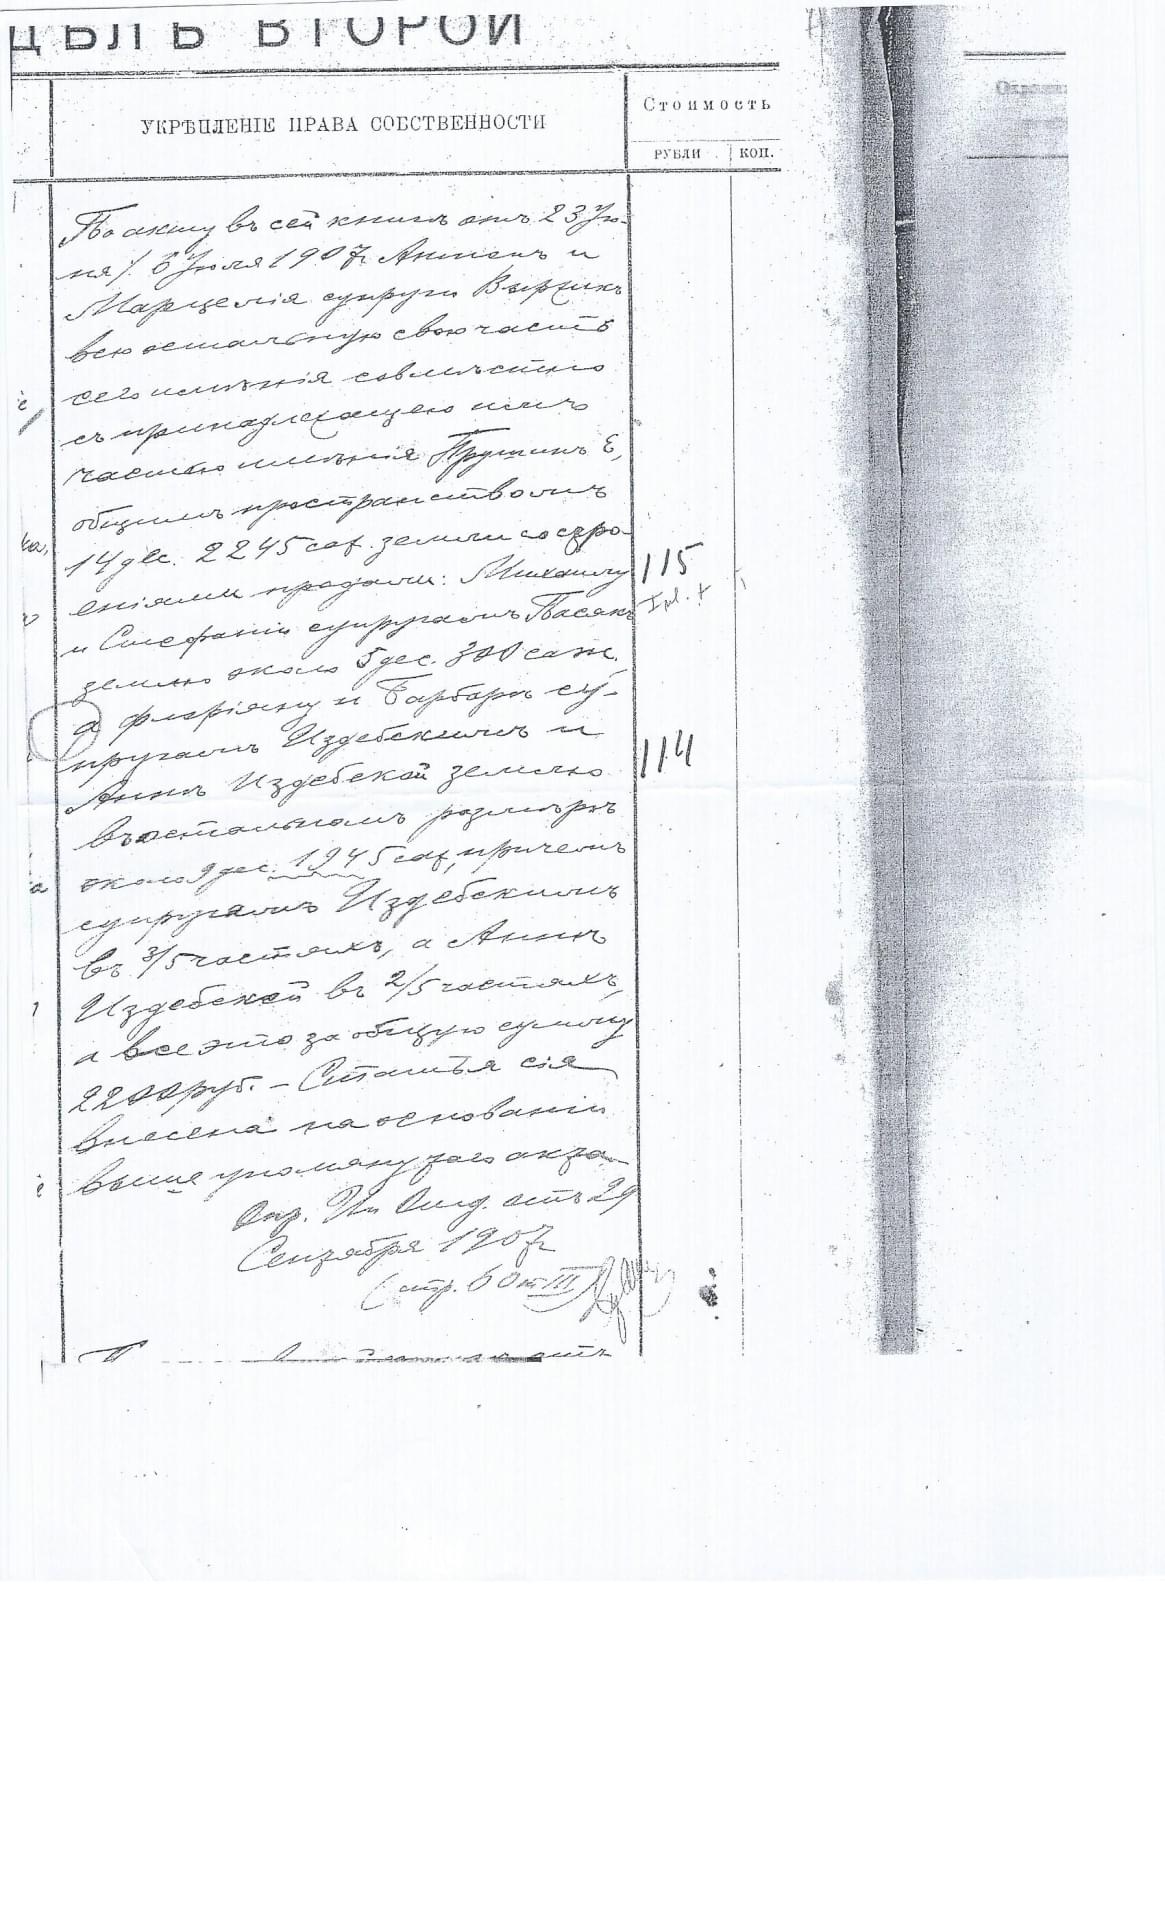 ДѢЛЪ ВТОРОЙ
УКРѢПЛЕНІЕ ПРАВА СОБСТВЕННОСТИ
Стоимость
РУБЛИ
КОП.
По акту въ сей книгѣ отъ 23 Ію-
ня/6 Іюля 1907 г. Антонъ и
Марцелія супруги
всю остальную свою часть
сего имѣнія совмѣстно
съ принадлежащею имъ
частью имѣнія Прушинъ Е,
общимъ пространствомъ
14 дес. 2245 саж. земли со стро-
еніями продали: Михаилу
115
и Стефаніи супругамъ Пасякъ
землю около 5 дес. 300 саж.,
а Флоріану и Барбарѣ су-
пругамъ Издебскимъ и
114
Аннѣ Издебской землю
въ остальномъ размѣрѣ
около 9 дес. 1945 саж., причемъ
супругамъ Издебскимъ
въ 3/5 частяхъ, а Аннѣ
Издебской въ 2/5 частяхъ,
а все это за общую сумму
2200 руб. – Статья сія
внесена на основаніи
выше упомянутаго акта
отъ 29
Сентября 1907 г.
(стр. 60 т III)